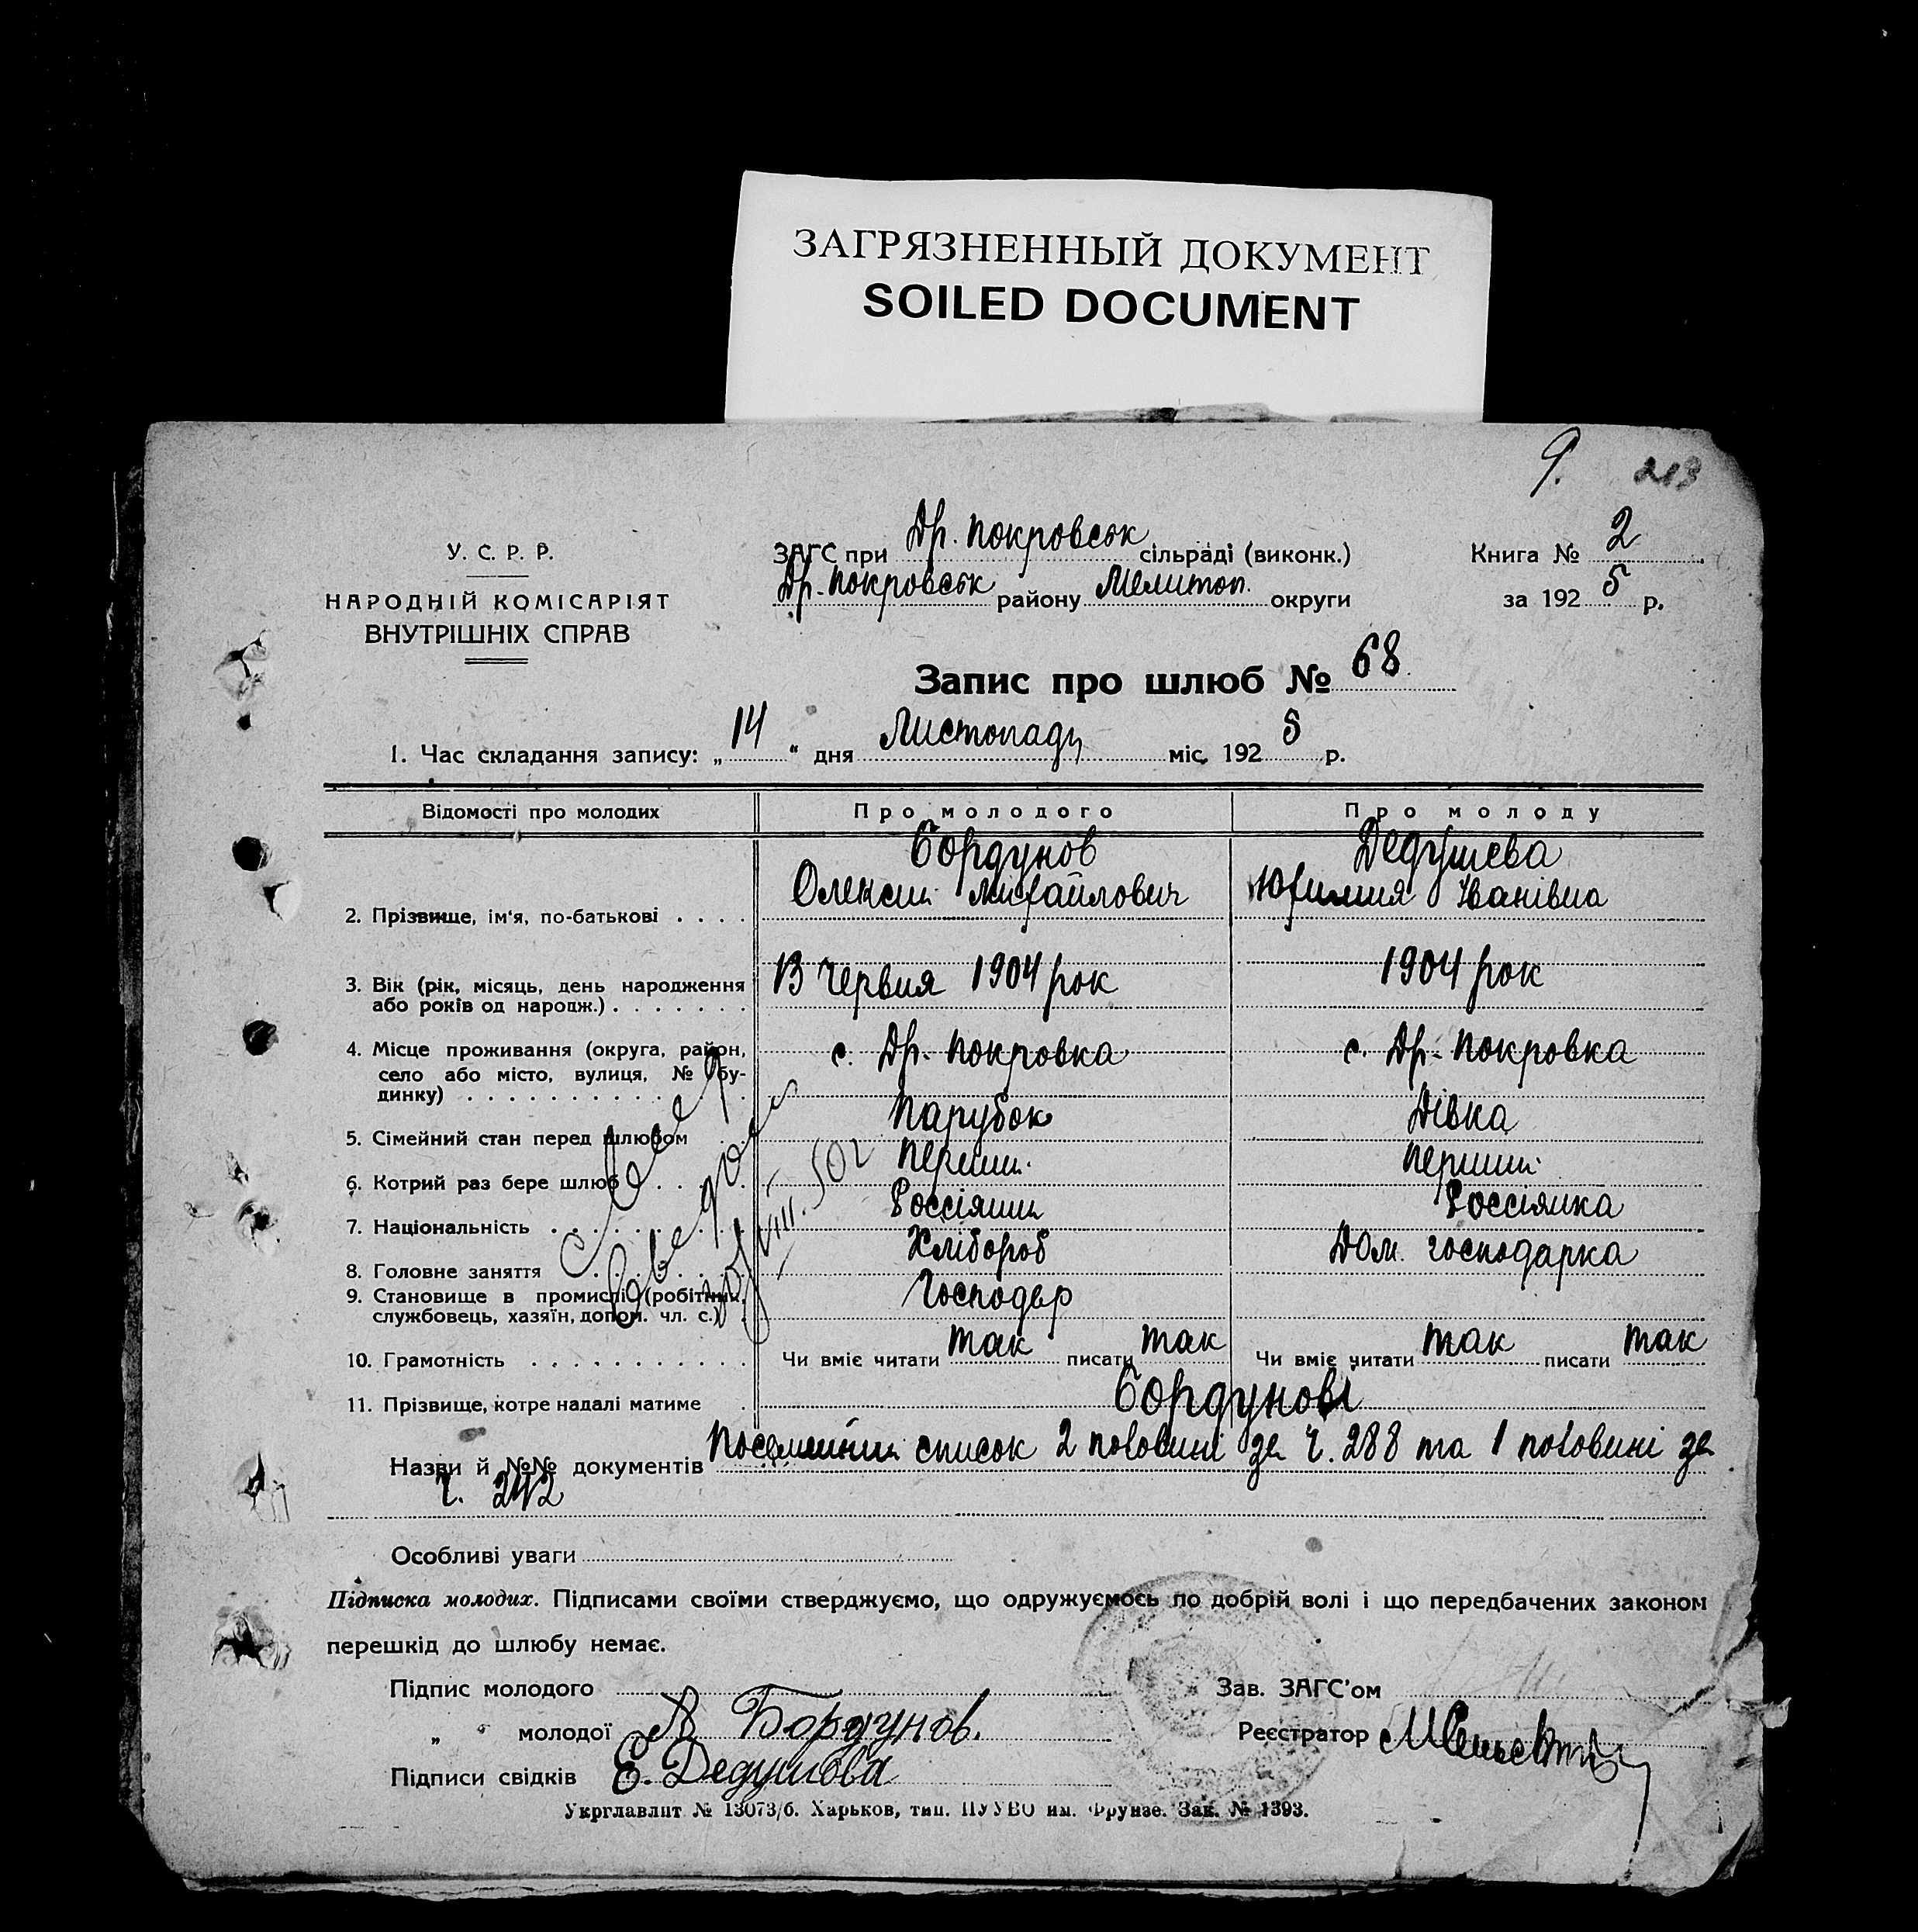 ЗАГРЯЗНЕННЫЙ ДОКУМЕНТ
SOILED DOCUMENT
9. 213
У. С. Р. Р.
НАРОДНІЙ КОМІСАРІЯТ
ВНУТРІШНІХ СПРАВ
ЗАГС при Др. Покровськ сільраді (виконк.)
Др. Покровськ району Мелитоп. округи
Книга № 2
за 1925 р.
Запис про шлюб № 68
1. Час складання запису: „14" дня Листопаду міс. 1925 р.
Відомості про молодих Про молодого Про молоду
2. Прізвище, ім'я, по-батькові . . . . Бордунов Олексій Михайлович Дедушева Юфимия Іванівна
3. Вік (рік, місяць, день народження 13 червня 1904 рок 1904 рок
або років од народж.) . . . . . . .
4. Місце проживання (округа, район, с. Др. Покровка с. Др. Покровка
село або місто, вулиця, № бу-
динку) . . . . . . . . . . . . .
5. Сімейний стан перед шлюбом Парубок Дівка
6. Котрий раз бере шлюб . . . . Перший Перший
7. Національність . . . . . . . . . Россіянин Россіянка
8. Головне заняття . . . . . . . Хлібороб Дом. господарка
9. Становище в промислі (робітник, Господар
службовець, хазяїн, допом. чл. с.)
10. Грамотність . . . . . . . . . . . Чи вміє читати так писати так Чи вміє читати так писати так
11. Прізвище, котре надалі матиме . Бордунові
Назви й №№ документів Посемейний список 2 половині за ч. 288 та 1 половині за
ч. 242
Особливі уваги
Підписка молодих. Підписами своїми стверджуємо, що одружуємось по добрій волі і що передбачених законом
перешкід до шлюбу немає.
Підпис молодого
„ молодої А Бордунов.
Підписи свідків Е. Дедушова
Зав. ЗАГС'ом
Реєстратор
Укрглавліт № 13073/б. Харьков, тип. ПУУВО им. Фрунзе. Зак. № 1393.